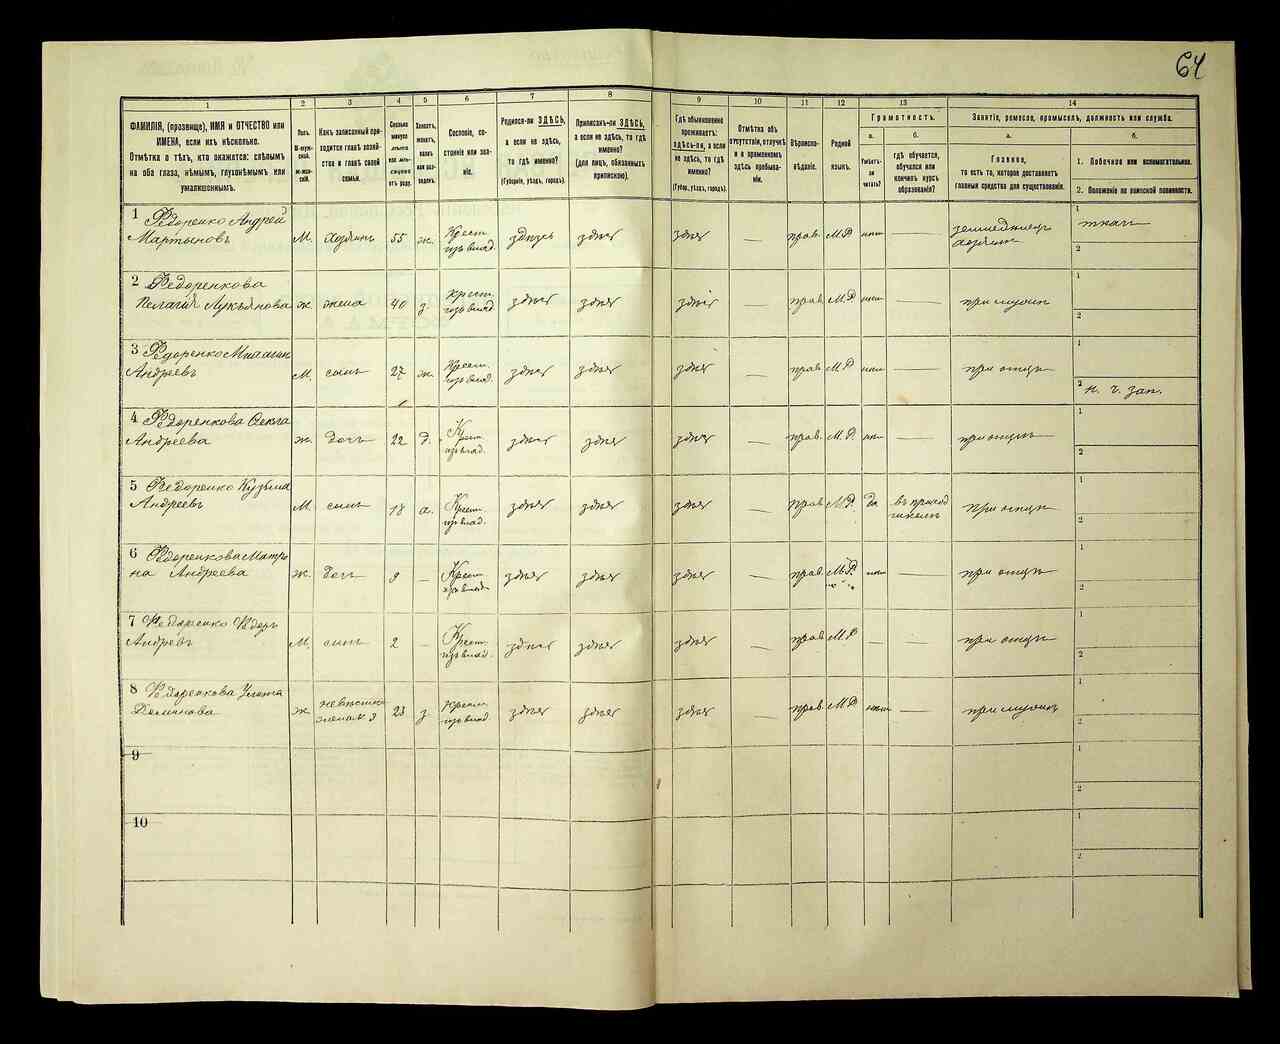 64
1 2 3 4 5 6 7 8 9 10 11 12 13 14
ФАМИЛІЯ, (прозвище), ИМЯ и ОТЧЕСТВО или
ИМЕНА, если ихъ нѣсколько.
Отмѣтка о тѣхъ, кто окажется: слѣпымъ
на оба глаза, нѣмымъ, глухонѣмымъ или
умалишеннымъ.
Полъ.
М-муж-
ской.
ж-жен-
скій.
Какъ записанный при-
ходится главѣ хозяй-
ства и главѣ своей
семьи.
Сколько
минуло
лѣтъ
или мѣ-
сяцевъ
отъ роду.
Холостъ,
женатъ,
вдовъ
или раз-
веденъ.
Сословіе, со-
стояніе или зва-
ніе.
Родился-ли ЗДѢСЬ,
а если не здѣсь,
то гдѣ именно?
(Губернія, уѣздъ, городъ).
Приписанъ-ли ЗДѢСЬ,
а если не здѣсь, то гдѣ
именно?
(для лицъ, обязанныхъ
припискою).
Гдѣ обыкновенно
проживаетъ:
здѣсь-ли, а если
не здѣсь, то гдѣ
именно?
(Губер., уѣздъ, городъ).
Отмѣтка объ
отсутствіи, отлучкѣ
и о временномъ
здѣсь пребыва-
ніи.
Вѣроиспо-
вѣданіе.
Родной
языкъ.
Грамотность.
а.
Умѣетъ-
ли
читать?
б.
гдѣ обучается,
обучался или
кончилъ курсъ
образованія?
Занятіе, ремесло, промыселъ, должность или служба.
а.
Главное,
то есть то, которое доставляетъ
главныя средства для существованія.
б.
1. Побочное или вспомогательное.
2. Положеніе по воинской повинности.
1 Федоренко Андрей
Мартыновъ М. Хозяинъ 55 ж. Крест. изъ влад. здѣсь здѣсь здѣсь — прав. М.Р. нѣтъ — земледѣлецъ хозяинъ 1 ткач 2
2 Федоренкова
Пелагія Лукьянова ж жена 40 з. крест. изъ влад. здѣсь здѣсь здѣсь — прав. М.Р. нѣтъ — при мужѣ 1 2
3 Федоренко
Андреевъ М. сынъ 27 ж. Крест. изъ влад. здѣсь здѣсь здѣсь — прав. М.Р нѣтъ — при отцѣ 1 2 н. ч. зап.
4 Федоренкова Фекла
Андреева ж. дочь 22 д. Крест. изъ влад. здѣсь здѣсь здѣсь — прав. М.Р. нѣтъ — при отцѣ 1 2
5 Федоренко Кузьма
Андреевъ М. сынъ 18 х. Крест. изъ влад. здѣсь здѣсь здѣсь — прав. М.Р. да въ приход школѣ при отцѣ 1 2
6 Федоренкова Матро
на Андреева ж. дочь 9 — Крест. изъ влад. здѣсь здѣсь здѣсь — прав. М.Р. нѣтъ — при отцѣ 1 2
7 Федоренко Федоръ
Андреевъ М. сынъ 2 — Крест. изъ влад. здѣсь здѣсь здѣсь — прав. М.Р — — при отцѣ 1 2
8 Федоренкова
ж невѣстка 23 з. Крест. изъ влад. здѣсь здѣсь здѣсь — прав. М.Р нѣтъ — при мужѣ 1 2
9 1 2
10 1 2